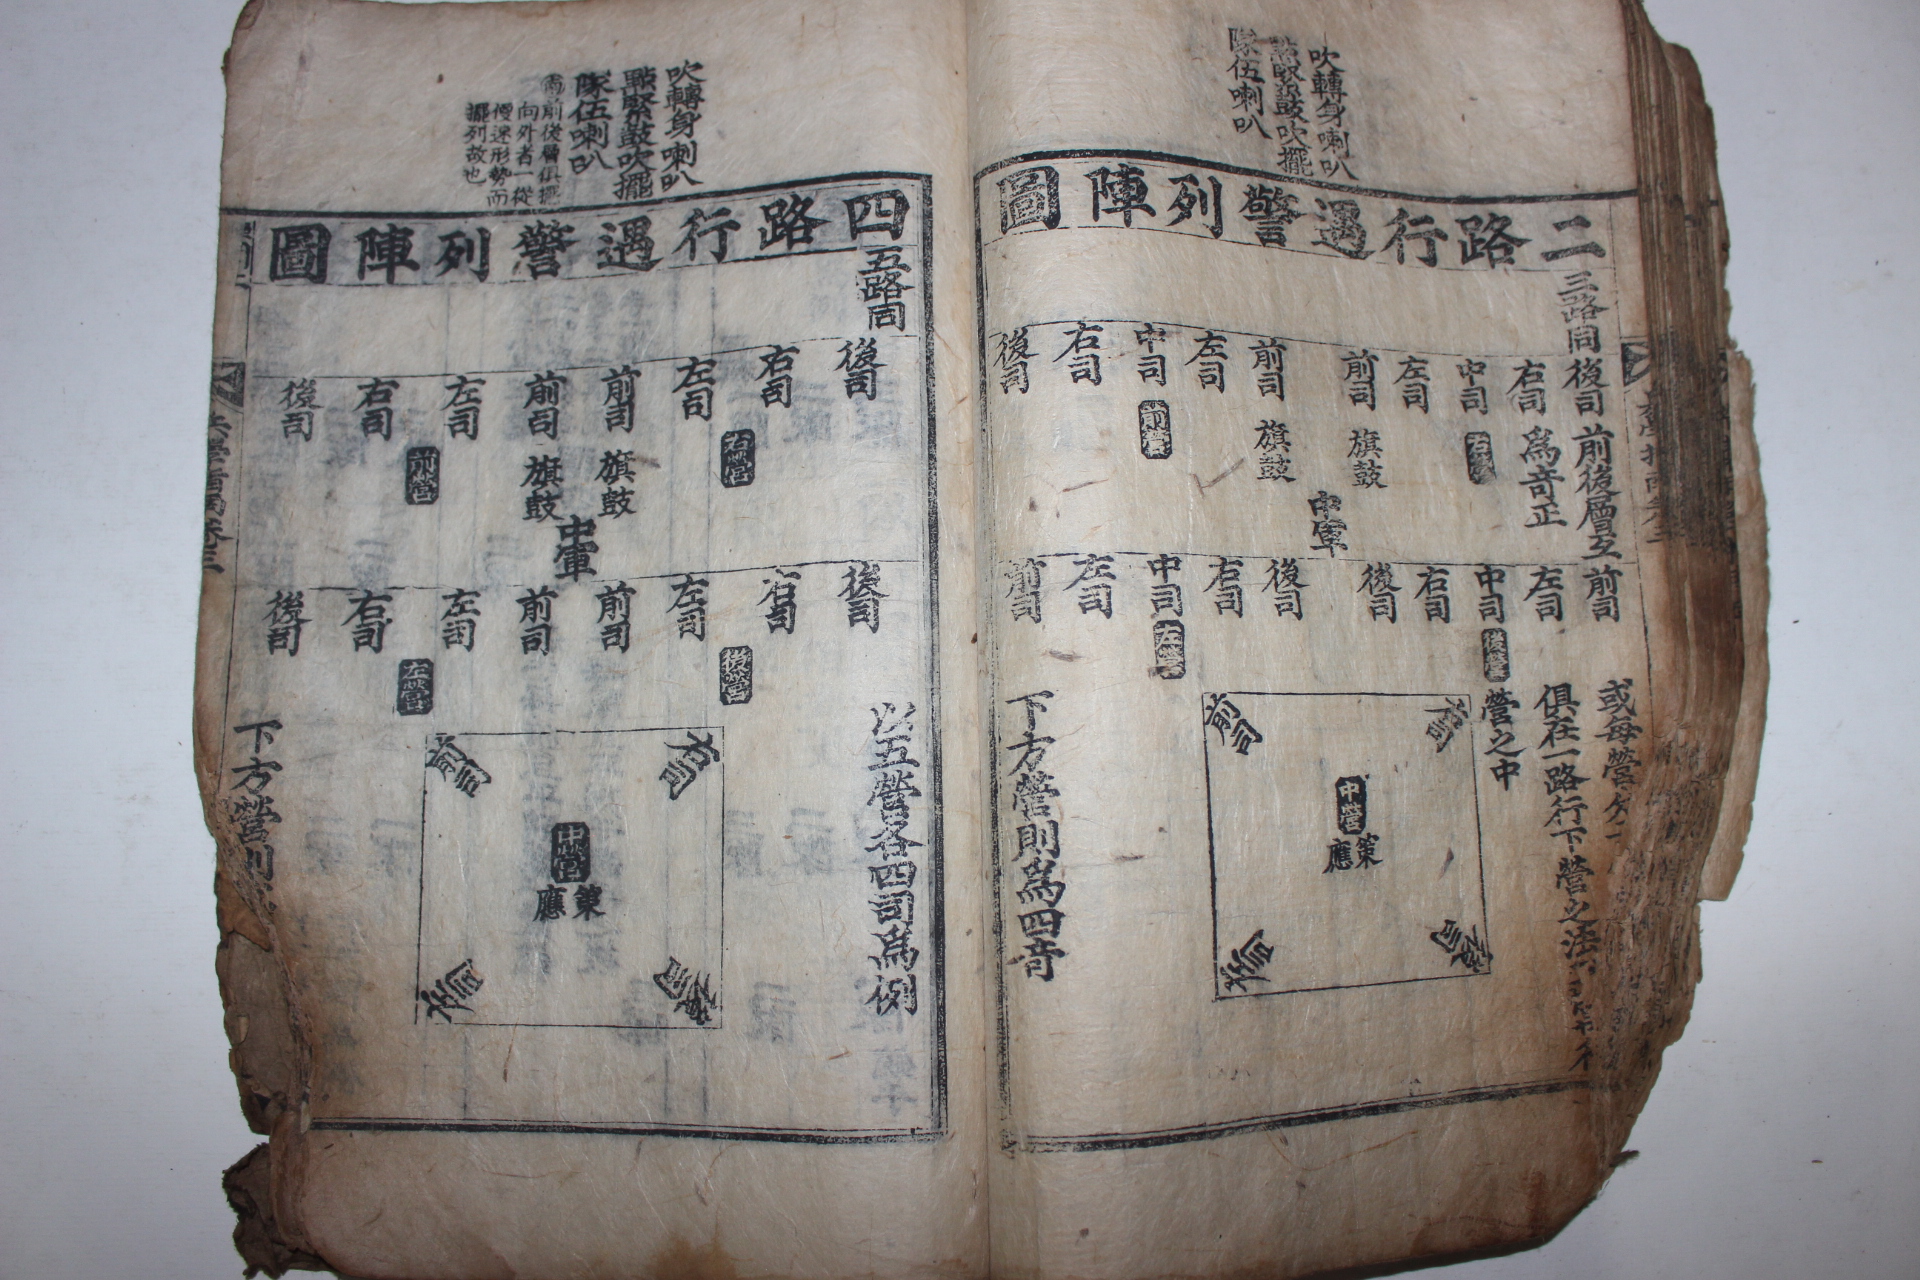 吹轉身喇叭
點緊鼓吹擺
隊伍喇叭
二路行遇警列陣圖
三路同
後司 右司 中司 左司 前司 前司 左司 中司 右司 後司
前後層互
爲奇正
右營
旗鼓
旗鼓
前營
中軍
前司 左司 中司 右司 後司 後司 右司 中司 左司 前司
後營
左營
或每營分
俱在一路行下營之法
營之中
右司
前司
中營
策應
後司
左司
下方營則爲四音
吹轉身喇叭
點緊鼓吹擺
隊伍喇叭
前後層俱擺
向外者一從
慢速形勢而
擺列故也
四路行遇警列陣圖
五路同
後司 右司 左司 前司 前司 左司 右司 後司
右營
旗鼓
旗鼓
前營
中軍
後司 右司 左司 前司 前司 左司 右司 後司
後營
左營
以五營各四司爲例
右司
前司
中營
策應
後司
左司
下方營則
兵學指南卷三